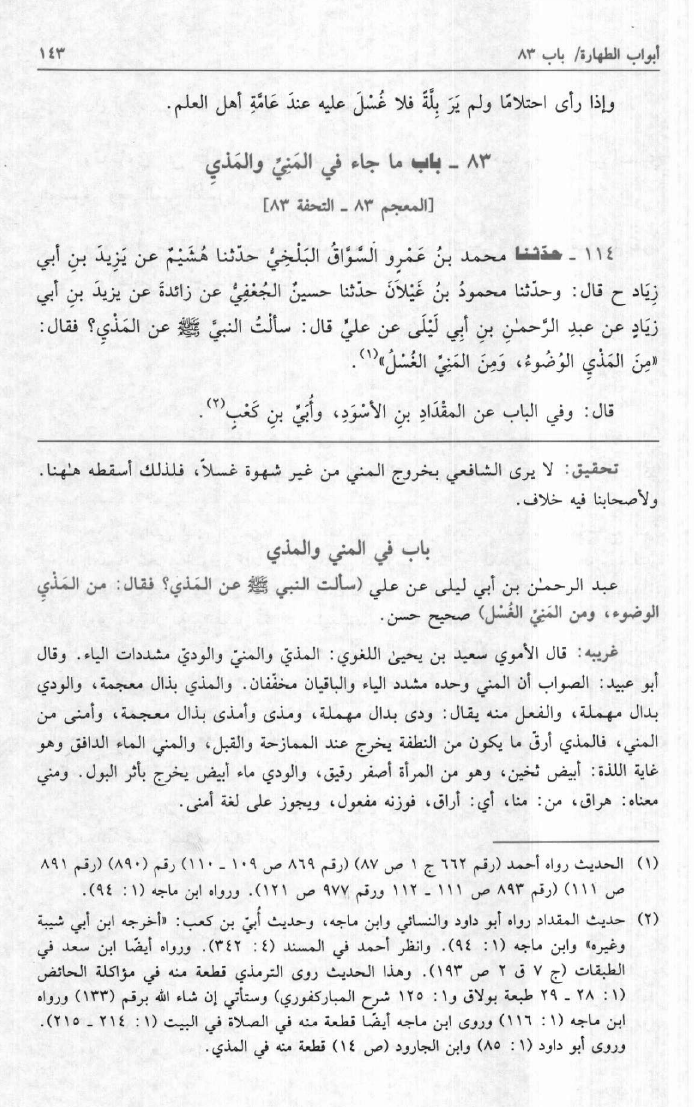 أبواب الطهارة/ باب ٨٣ ١٤٣
وإذا رأى احتلامًا ولم يَرَ بِلَّةً فلا غُسْلَ عليه عندَ عَامَّةِ أهل العلم.
٨٣ ـ باب ما جاء في المَنِيِّ والمَذيِ
[المعجم ٨٣ ـ التحفة ٨٣]
١١٤ ـ حدّثنا محمد بنُ عَمْرٍو السَّوَّاقُ البَلْخِيُّ حدّثنا هُشَيْمٌ عن يَزِيدَ بنِ أبي
زِيَاد ح قال: وحدّثنا محمودُ بنُ غَيْلَانَ حدّثنا حسينٌ الجُعْفِيُّ عن زائدةَ عن يزيدَ بنِ أبي
زِيَادٍ عن عبدِ الرَّحمٰنِ بنِ أبِي لَيْلَى عن عليٍّ قال: سألْتُ النبيَّ ﷺ عن المَذْيِ؟ فقال:
«مِنَ المَذْيِ الوُضُوءُ، وَمِنَ المَنِيِّ الغُسْلُ»(١).
قال: وفي الباب عن المقْدَادِ بنِ الأسْوَدِ، وأُبَيِّ بنِ كَعْبٍ(٢).
تحقيق: لا يرى الشافعي بخروج المني من غير شهوة غسلاً، فلذلك أسقطه هٰهنا.
ولأصحابنا فيه خلاف.
باب في المني والمذي
عبد الرحمٰن بن أبي ليلى عن علي (سألت النبي ﷺ عن المَذي؟ فقال: من المَذْيِ
الوضوء، ومن المَنِيِّ الغُسْل) صحيح حسن.
غريبه: قال الأموي سعيد بن يحيىٰ اللغوي: المذيّ والمنيّ والوديّ مشددات الياء. وقال
أبو عبيد: الصواب أن المني وحده مشدد الياء والباقيان مخفّفان. والمذي بذال معجمة، والودي
بدال مهملة، والفعل منه يقال: ودى بدال مهملة، ومذى وأمذى بذال معجمة، وأمنى من
المني، فالمذي أرقّ ما يكون من النطفة يخرج عند الممازحة والقبل، والمني الماء الدافق وهو
غاية اللذة: أبيض ثخين، وهو من المرأة أصفر رقيق، والودي ماء أبيض يخرج بأثر البول. ومني
معناه: هراق، من: منا، أي: أراق، فوزنه مفعول، ويجوز على لغة أمنى.
(١) الحديث رواه أحمد (رقم ٦٦٢ ج ١ ص ٨٧) (رقم ٨٦٩ ص ١٠٩ ـ ١١٠) رقم (٨٩٠) (رقم ٨٩١
ص ١١١) (رقم ٨٩٣ ص ١١١ ـ ١١٢ ورقم ٩٧٧ ص ١٢١). ورواه ابن ماجه (١: ٩٤).
(٢) حديث المقداد رواه أبو داود والنسائي وابن ماجه، وحديث أُبيّ بن كعب: «أخرجه ابن أبي شيبة
وغيره» وابن ماجه (١: ٩٤). وانظر أحمد في المسند (٤: ٣٤٢). ورواه أيضًا ابن سعد في
الطبقات (ج ٧ ق ٢ ص ١٩٣). وهذا الحديث روى الترمذي قطعة منه في مؤاكلة الحائض
(١: ٢٨ ـ ٢٩ طبعة بولاق و١: ١٢٥ شرح المباركفوري) وستأتي إن شاء الله برقم (١٣٣) ورواه
ابن ماجه (١: ١١٦) وروى ابن ماجه أيضًا قطعة منه في الصلاة في البيت (١: ٢١٤ ـ ٢١٥).
وروى أبو داود (١: ٨٥) وابن الجارود (ص ١٤) قطعة منه في المذي.